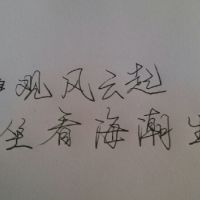 观风云起
坐看海潮生